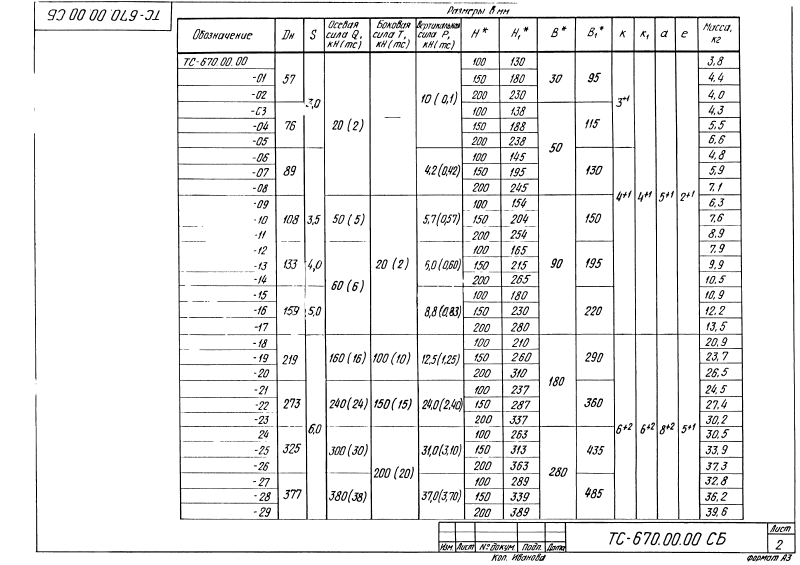 ТС-670 00 00 СБ
Размеры в мм
Обозначение Dн S Осевая сила Q, кН(тс) Боковая сила Т, кН(тс) Вертикальная сила Р, кН(тс) H* H₁* B* B₁* к к₁ а е Масса, кг
ТС-670.00.00 57 3,0 20 (2) — 10 (0,1) 100 130 30 95 3⁺¹ 4⁺¹ 5⁺¹ 2⁺¹ 3,8
-01 150 180 4,4
-02 200 230 4,0
-03 76 100 138 50 115 4,3
-04 150 188 5,5
-05 200 238 6,6
-06 89 4,2(0,42) 100 145 130 4⁺¹ 4,8
-07 150 195 5,9
-08 200 245 7,1
-09 108 3,5 50 (5) 20 (2) 5,7(0,57) 100 154 90 150 6,3
-10 150 204 7,6
-11 200 254 8,9
-12 133 4,0 60 (6) 6,0(0,60) 100 165 195 7,9
-13 150 215 9,9
-14 200 265 10,5
-15 159 5,0 8,8(0,83) 100 180 220 10,9
-16 150 230 12,2
-17 200 280 13,5
-18 219 6,0 160 (16) 100 (10) 12,5(1,25) 100 210 180 290 6⁺² 6⁺² 8⁺² 5⁺¹ 20,9
-19 150 260 23,7
-20 200 310 26,5
-21 273 240(24) 150 (15) 24,0(2,40) 100 237 360 24,5
-22 150 287 27,4
-23 200 337 30,2
24 325 300(30) 200 (20) 31,0(3,10) 100 263 280 435 30,5
-25 150 313 33,9
-26 200 363 37,3
-27 377 380(38) 37,0(3,70) 100 289 485 32,8
-28 150 339 36,2
-29 200 389 39,6
Изм Лист №докум. Подп. Дата
ТС-670.00.00 СБ
Лист
2
Коп. Иванова
формат А3